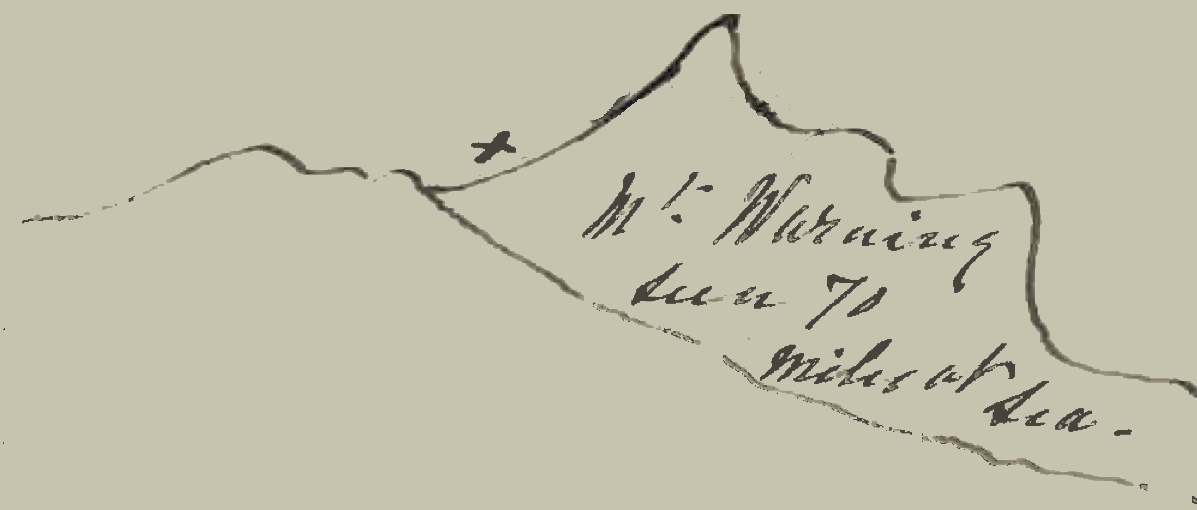 Mt. Warning
seen 70
miles at
sea.